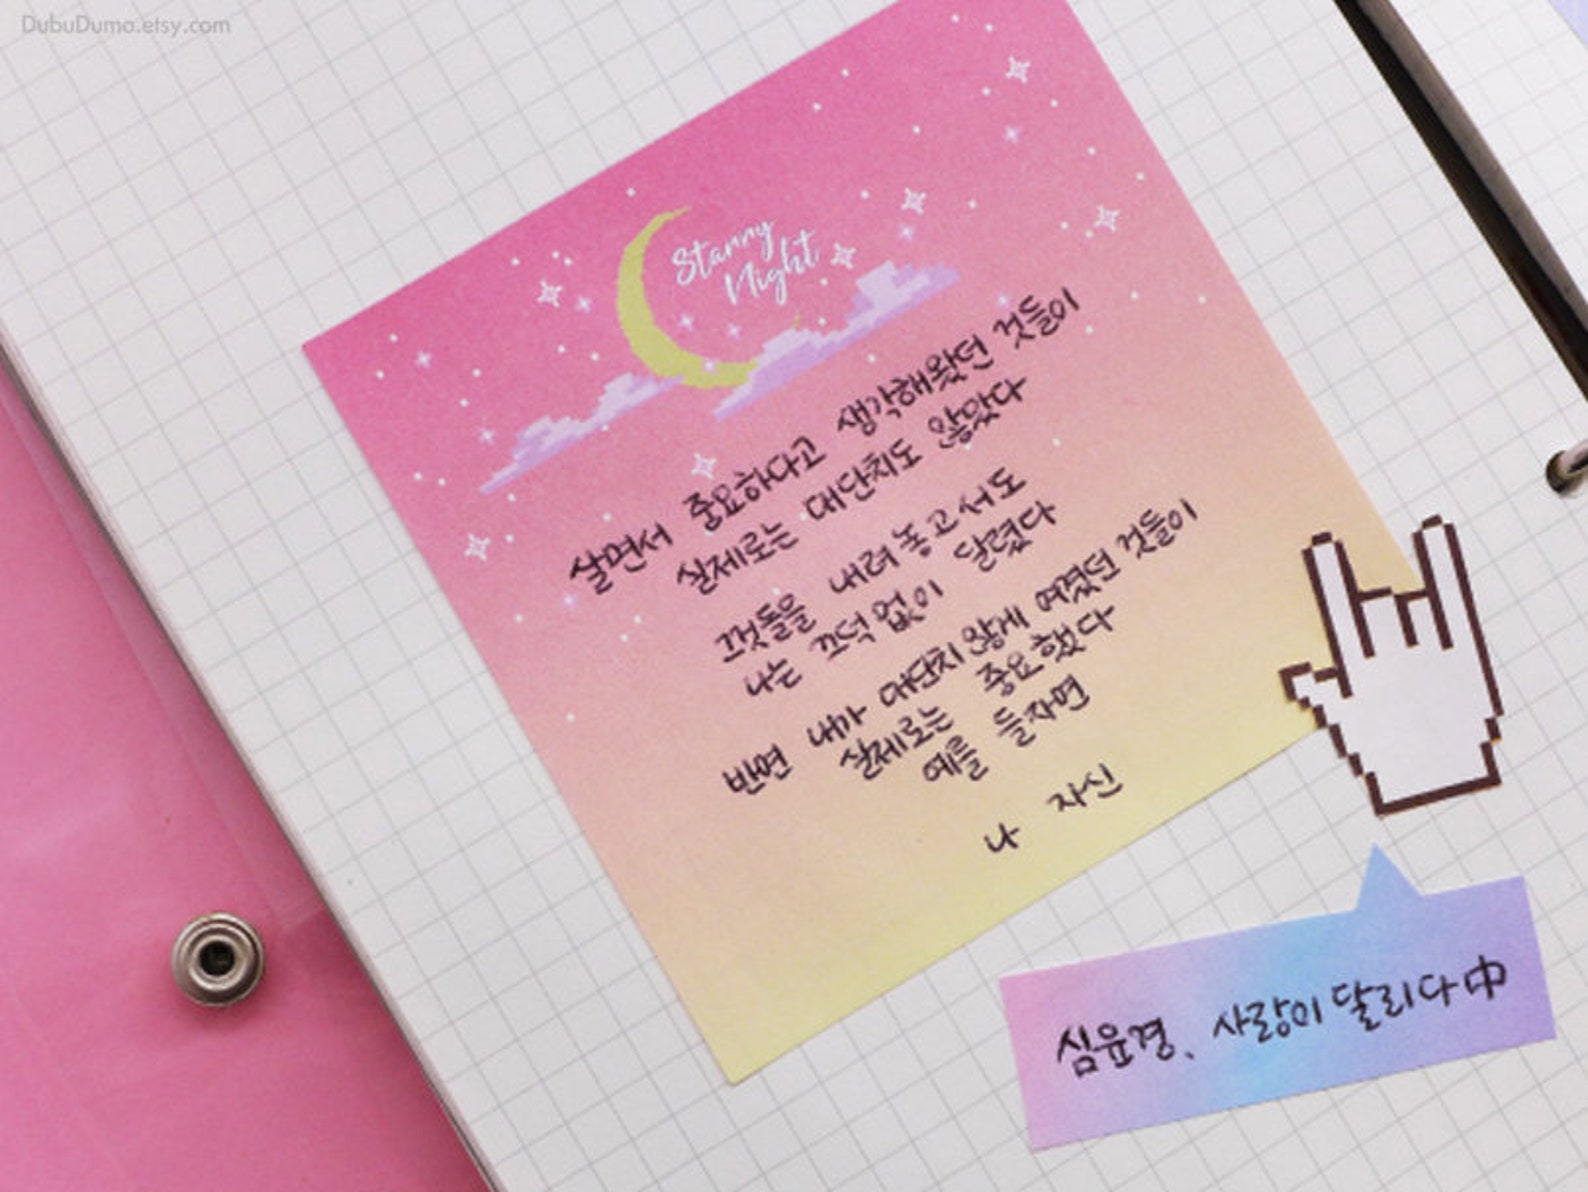 DubuDumo.etsy.com
Starry
Night
살면서 중요하다고 생각해왔던 것들이
실제로는 대단치도 않았다
그것들을 내려놓고서도
나는 끄떡없이 달렸다
반면 내가 대단치 않게 여겼던 것들이
실제로는 중요했다
예를 들자면
나 자신
심윤경, 사랑이 달리다 中